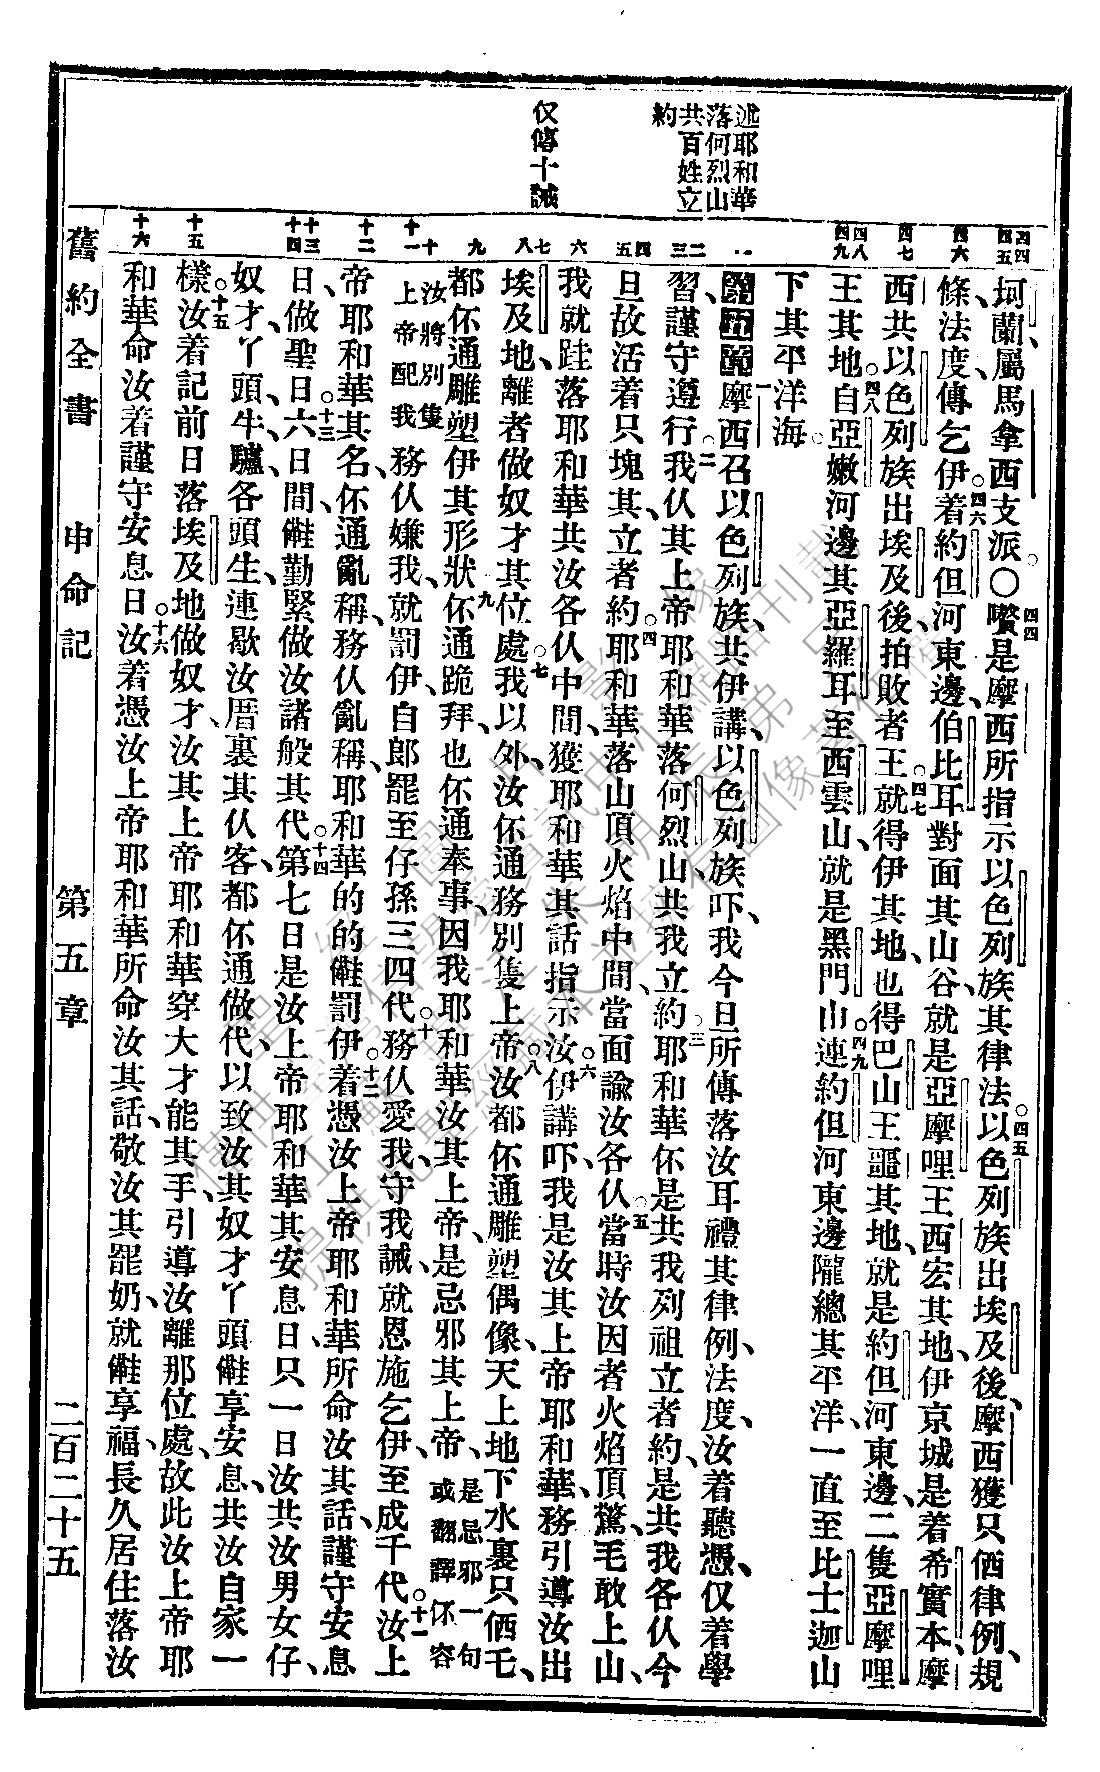 述耶和華
落何烈山
共百姓立
約
仅傳十誡
四四
四五
四六
四七
四八
四九
一
二
三
四
五
六
七
八
九
十
十一
十二
十三
十四
十五
十六
坷蘭、屬馬拿西支派。○四四 是摩西所指示以色列族其律法。四五以色列族出埃及後、摩西獲只佰律例、規
條、法度、傳乞伊。四六着約但河東邊、伯比耳對面其山谷、就是亞摩哩王西宏其地、伊京城是着希實本、摩
西共以色列族出埃及後、拍敗者王。四七就得伊其地、也得巴山王噩其地、就是約但河東邊、二隻亞摩哩
王其地。四八自亞嫩河邊其亞羅耳、至西雲山、就是黑門山。四九連約但河東邊隴總其平洋、一直至比士迦山
下其平洋海。
第五章 一摩西召以色列族、共伊講、以色列族吓、我今旦所傳落汝耳禮其律例、法度、汝着聽憑、仅着學
習、謹守遵行。二我仈其上帝耶和華、落何烈山、共我立約。三耶和華伓是共我列祖立者約、是共我各仈今
旦故活着只塊其、立者約。四耶和華落山頂火焰中間、當面諭汝各仈。五當時汝因者火焰頂驚、毛敢上山、
我就跬落耶和華共汝各仈中間、獲耶和華其話指示汝。六伊講吓、我是汝其上帝耶和華、務引導汝出
埃及地、離者做奴才其位處。七我以外、汝伓通務別隻上帝。八汝都伓通雕塑偶像、天上地下水裏只佰乇、
都伓通雕塑伊其形狀。九伓通跪拜、也伓通奉事、因我耶和華汝其上帝、是忌邪其上帝、是忌邪一句或翻譯伓容
汝將別隻上帝配我務仈嫌我、就罰伊、自郎罷至仔孫三四代。十務仈愛我、守我誡、就恩施乞伊、至成千代。十一汝上
帝耶和華其名、伓通亂稱、務仈亂稱耶和華的的罰伊。十二着憑汝上帝耶和華所命汝其話、謹守安息
日、做聖日。十三六日間勤緊做汝諸般其代。十四第七日是汝上帝耶和華其安息日、只一日、汝共汝男女仔、
奴才、丫頭、牛、驢、各頭生、連歇汝厝裏其仈客、都伓通做代、以致汝其奴才丫頭享安息、共汝自家一
樣。十五汝着記前日落埃及地做奴才、汝其上帝耶和華穿大才能其手、引導汝離那位處、故此汝上帝耶
和華命汝着謹守安息日。十六汝着憑汝上帝耶和華所命汝其話、敬汝其罷奶、就享福、長久居住落汝
舊約全書 申命記 第五章 二百二十五